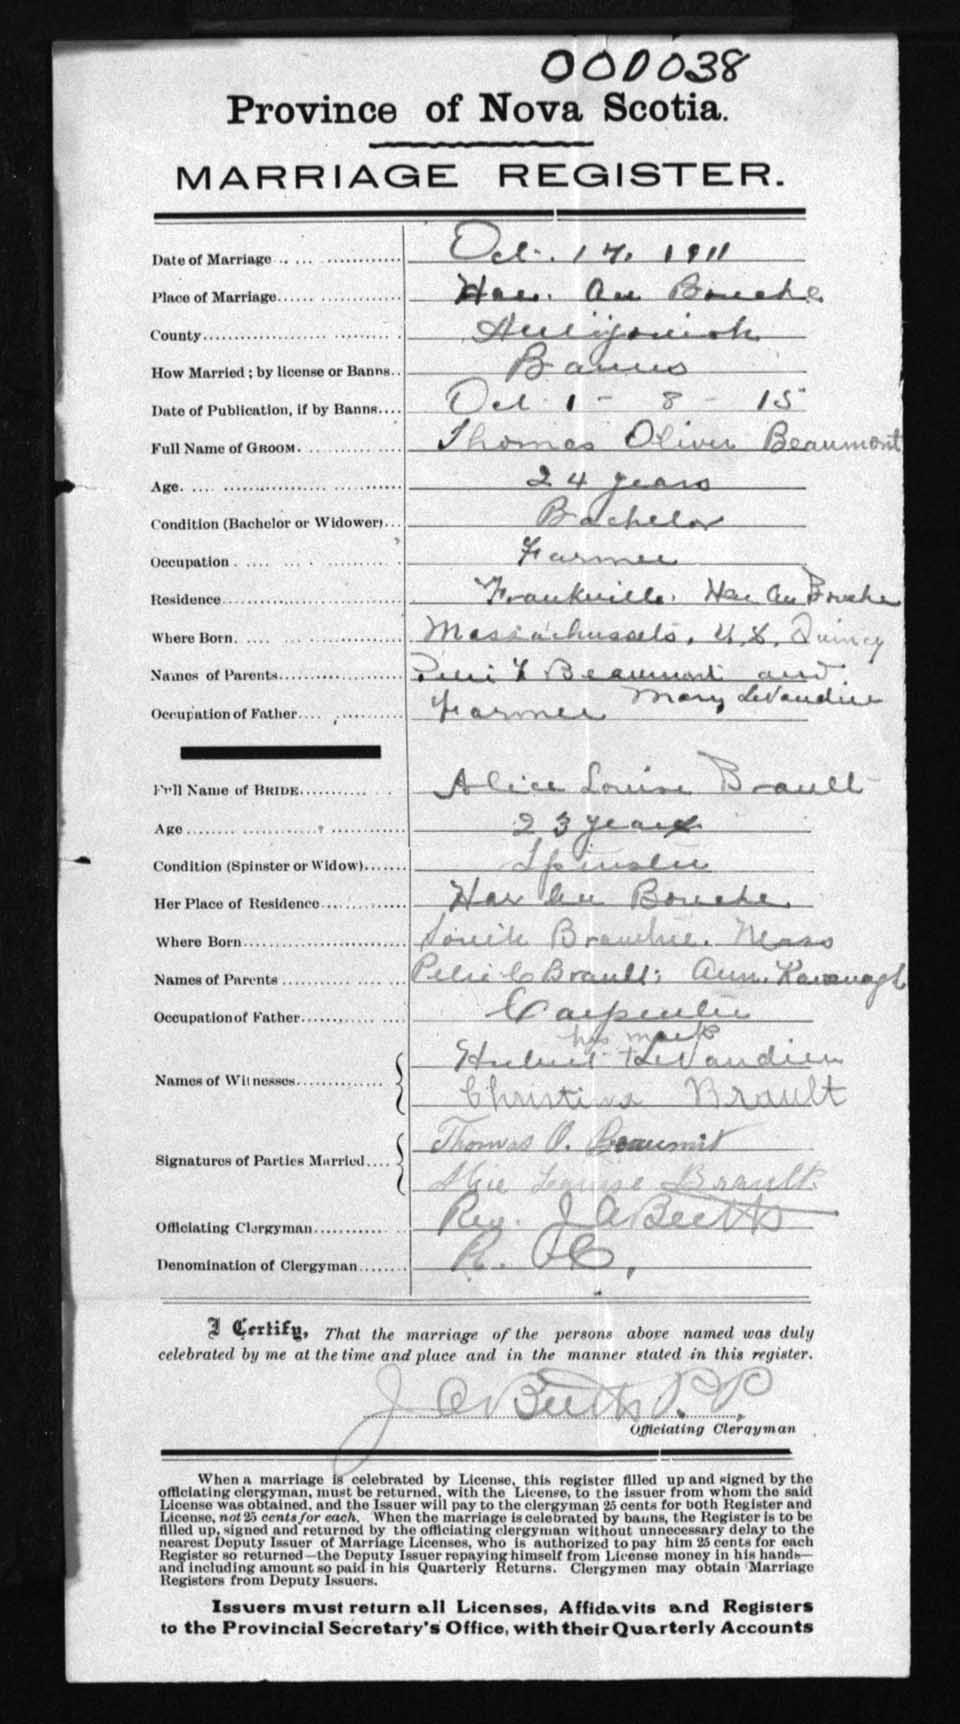 000038
Province of Nova Scotia.
MARRIAGE REGISTER.
Date of Marriage Oct. 17, 1911
Place of Marriage Har. Au Bouche
County Antigonish
How Married; by license or Banns Banns
Date of Publication, if by Banns Oct 1 - 8 - 15
Full Name of GROOM Thomas Oliver Beaumont
Age 24 years
Condition (Bachelor or Widower) Bachelor
Occupation Farmer
Residence Frankville. Har Au Bouche
Where Born Massachussets, U.S. Quincy
Names of Parents Beaumont and
Mary LeVandier
Occupation of Father Farmer
Full Name of BRIDE Alice Louise Brault
Age 23 years
Condition (Spinster or Widow) Spinster
Her Place of Residence Har au Bouche
Where Born Mass
Names of Parents Brault; Ann. Kavanagh
Occupation of Father Carpenter
his mark
Names of Witnesses Hubert + LeVandier
Christina Brault
Thomas O. Beaumont
Signatures of Parties Married
Alice Louise Brault
Officiating Clergyman Rev. J A Beets
Denomination of Clergyman R. C.
I Certify, That the marriage of the persons above named was duly
celebrated by me at the time and place and in the manner stated in this register.
J A Beets P.P.
Officiating Clergyman
When a marriage is celebrated by License, this register filled up and signed by the
officiating clergyman, must be returned, with the License, to the issuer from whom the said
License was obtained, and the Issuer will pay to the clergyman 25 cents for both Register and
License, not 25 cents for each. When the marriage is celebrated by banns, the Register is to be
filled up, signed and returned by the officiating clergyman without unnecessary delay to the
nearest Deputy Issuer of Marriage Licenses, who is authorized to pay him 25 cents for each
Register so returned—the Deputy Issuer repaying himself from License money in his hands—
and including amount so paid in his Quarterly Returns. Clergymen may obtain Marriage
Registers from Deputy Issuers.
Issuers must return all Licenses, Affidavits and Registers
to the Provincial Secretary's Office, with their Quarterly Accounts